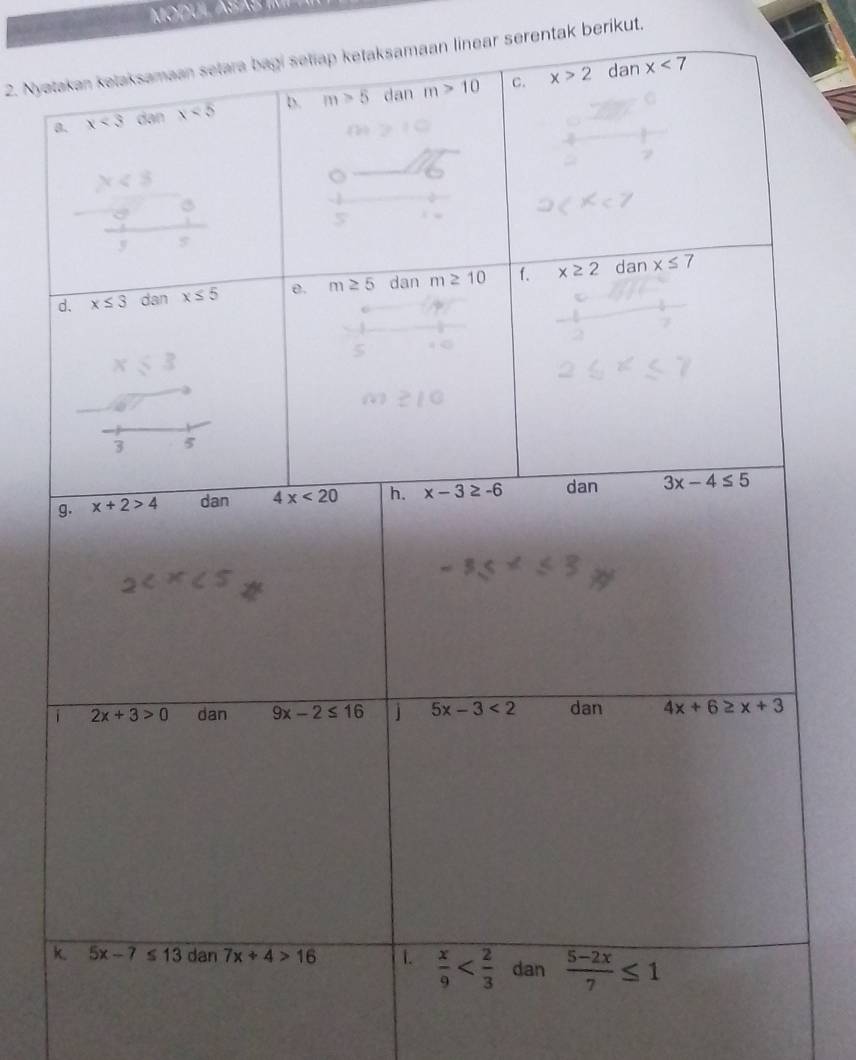 MODUL ASAS
2. Nyatakan ketaksamaan setara bagi setiap ketaksamaan linear serentak berikut.
a. x < 3 dan x < 5
b. m > 5 dan m > 10
c. x > 2 dan x < 7
x < 3
3 5
m > 10
5 10
2 7
2 < x < 7
d. x ≤ 3 dan x ≤ 5
e. m ≥ 5 dan m ≥ 10
f. x ≥ 2 dan x ≤ 7
x ≤ 3
3 5
5 10
m ≥ 10
2 7
2 ≤ x ≤ 7
g. x + 2 > 4 dan 4x < 20
h. x − 3 ≥ -6 dan 3x − 4 ≤ 5
2 < x < 5
- 3 ≤ x ≤ 3
i 2x + 3 > 0 dan 9x − 2 ≤ 16
j 5x − 3 < 2 dan 4x + 6 ≥ x + 3
k. 5x − 7 ≤ 13 dan 7x + 4 > 16
l. x/9 < 2/3 dan (5−2x)/7 ≤ 1